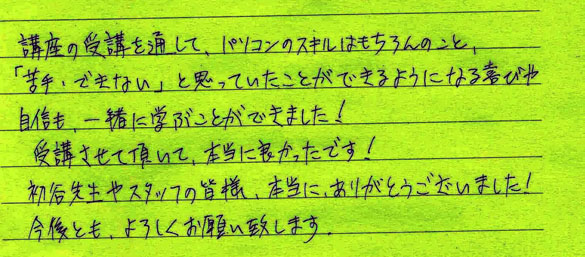 講座の受講を通して、パソコンのスキルはもちろんのこと、
「苦手・できない」と思っていたことができるようになる喜びや
自信も、一緒に学ぶことができました!
受講させて頂いて、本当に良かったです!
初谷先生やスタッフの皆様、本当に、ありがとうございました!
今後とも、よろしくお願い致します。